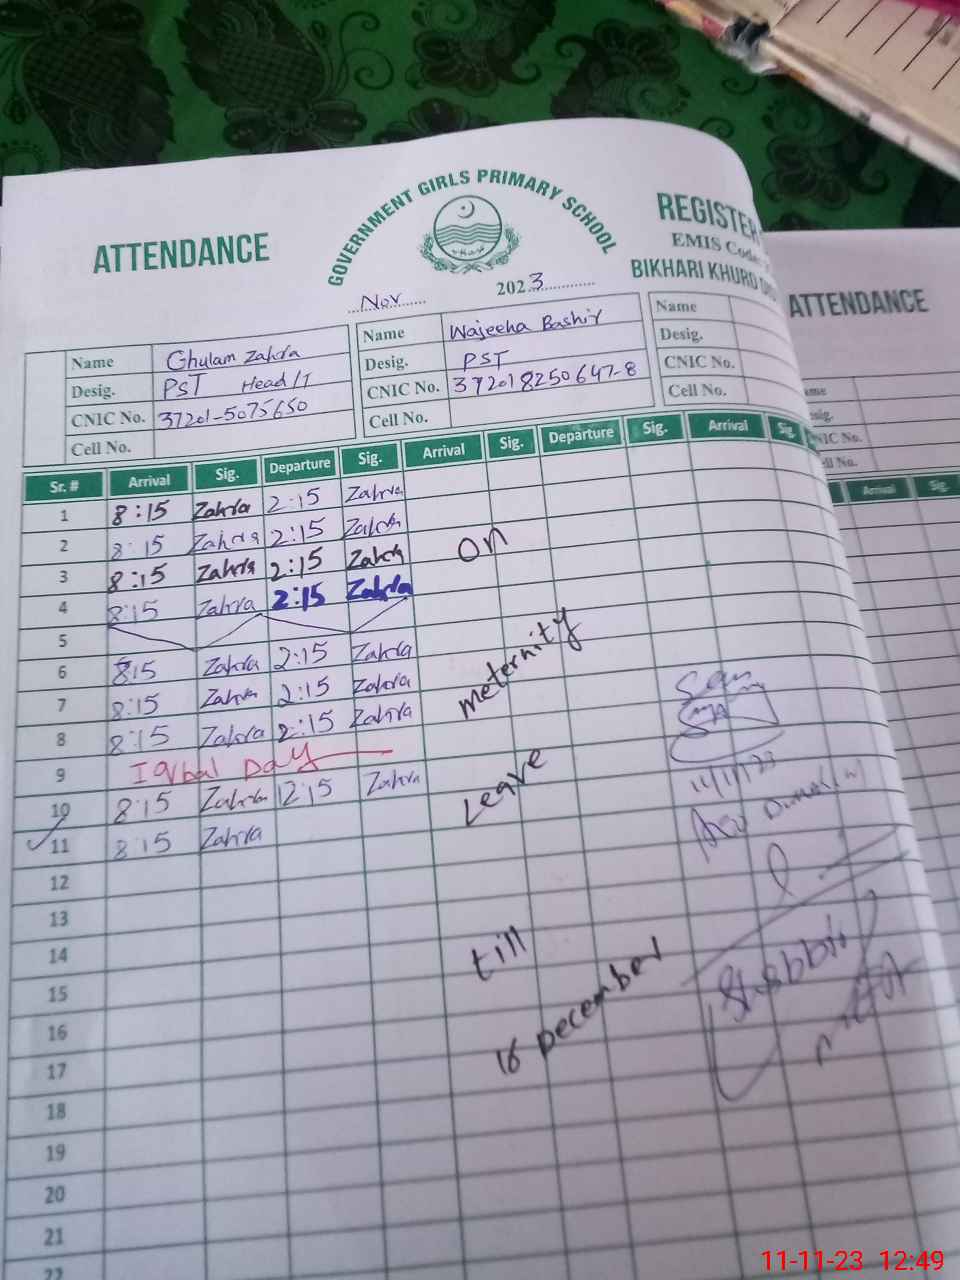 GOVERNMENT GIRLS PRIMARY SCHOOL
ATTENDANCE
REGISTER
EMIS Code
BIKHARI KHURD
Nov 2023
Name Ghulam Zahra
Desig. PST Head/T
CNIC No. 37201-5075650
Cell No.
Name Wajeeha Bashir
Desig. PST
CNIC No. 372018250647-8
Cell No.
Name
Desig.
CNIC No.
Cell No.
Sr. # Arrival Sig. Departure Sig. Arrival Sig. Departure Sig. Arrival Sig.
1 8:15 Zahra 2:15 Zahra
2 8:15 Zahra 2:15 Zahra
3 8:15 Zahra 2:15 Zahra
4 8:15 Zahra 2:15 Zahra
5
6 8:15 Zahra 2:15 Zahra
7 8:15 Zahra 2:15 Zahra
8 8:15 Zahra 2:15 Zahra
9 Iqbal Day
10 8:15 Zahra 12:15 Zahra
11 8:15 Zahra
12
13
14
15
16
17
18
19
20
21
22
on
meternity
Leave
till
16 December
11/11/23
ATTENDANCE
No.
Arrival Sig.
11-11-23 12:49